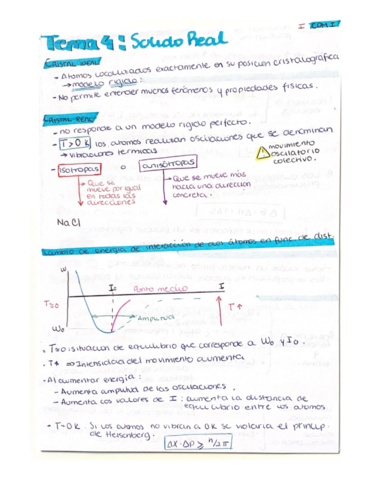 I COM.I
Tema 4: Solido Real
Cristal ideal
- Atomos localizados exactamente en su posición cristalográfica
→ modelo rígido.
- No permite entender muchos fenómenos y propiedades físicas.
Cristal real
- no responde a un modelo rígido perfecto.
- T>0K los átomos realizan oscilaciones que se denominan
→ vibraciones térmicas
movimiento
oscilatorio
colectivo.
- isotropas o anisótropas
→ Que se
mueve por igual
en todas las
direcciones
→ Que se mueve más
hacia una dirección
concreta.
NaCl
Cambio de energía de interacción de dos átomos en func. de dist.
W
I₀ Punto medio I
T=0
Amplitud
T↑
W₀
. T=0: situación de equilibrio que corresponde a W₀ y I₀.
. T↑ ⇒ Intensidad del movimiento aumenta.
. Al aumentar energía:
- Aumenta amplitud de las oscilaciones.
- Aumenta los valores de I: aumenta la distancia de
equilibrio entre los átomos.
- T=0K Si los átomos no vibran a 0K se violaría el princip.
de Heisenberg.
ΔX·ΔP ≥ h/2π